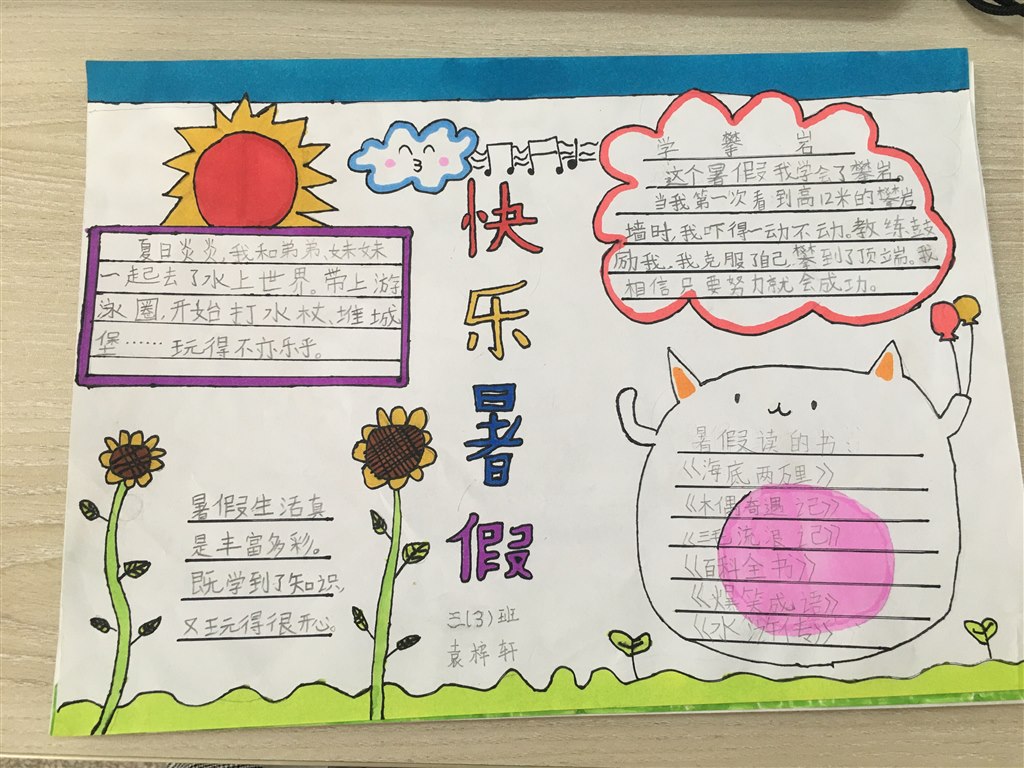 快乐暑假
夏日炎炎,我和弟弟、妹妹
一起去了水上世界。带上游
泳圈,开始打水杖、堆城
堡……玩得不亦乐乎。
学攀岩
这个暑假我学会了攀岩。
当我第一次看到高12米的攀岩
墙时,我吓得一动不动。教练鼓
励我,我克服了自己,攀到了顶端。我
相信只要努力就会成功。
暑假生活真
是丰富多彩。
既学到了知识,
又玩得很开心。
暑假读的书:
《海底两万里》
《木偶奇遇记》
《三毛流浪记》
《百科全书》
《爆笑成语》
《水浒传》
三(3)班
袁梓轩